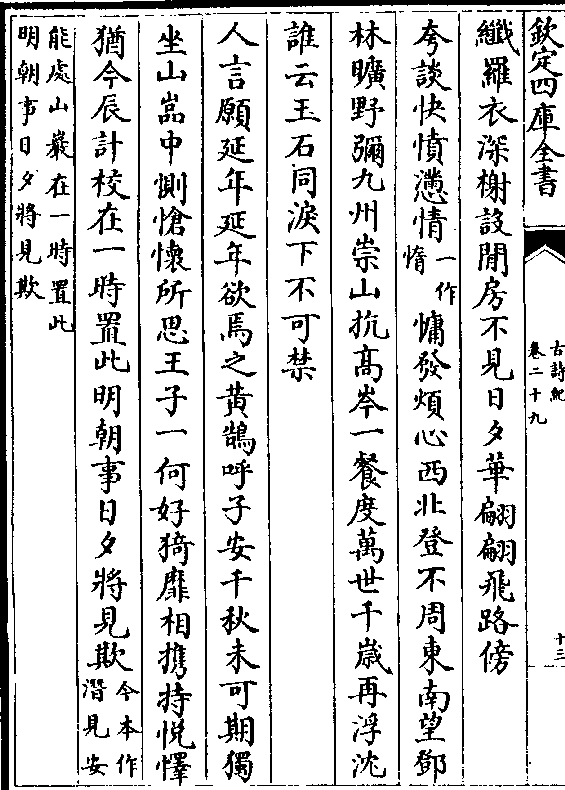 欽定四庫全書
古詩紀
卷二十九
十三
纖羅衣深榭設閒房不見日夕華翩翩飛路傍
夸談快憤懣情一作惰慵發煩心西北登不周東南望鄧
林曠野彌九州崇山抗高岑一餐度萬世千歳再浮沈
誰云玉石同淚下不可禁
人言願延年延年欲焉之黄鵠呼子安千秋未可期獨
坐山嵓中惻愴懷所思王子一何好猗靡相攜持悦懌
猶今辰計校在一時置此明朝事日夕將見欺今本作潛見安
能處山巖在一時置此
明朝事日夕將見欺